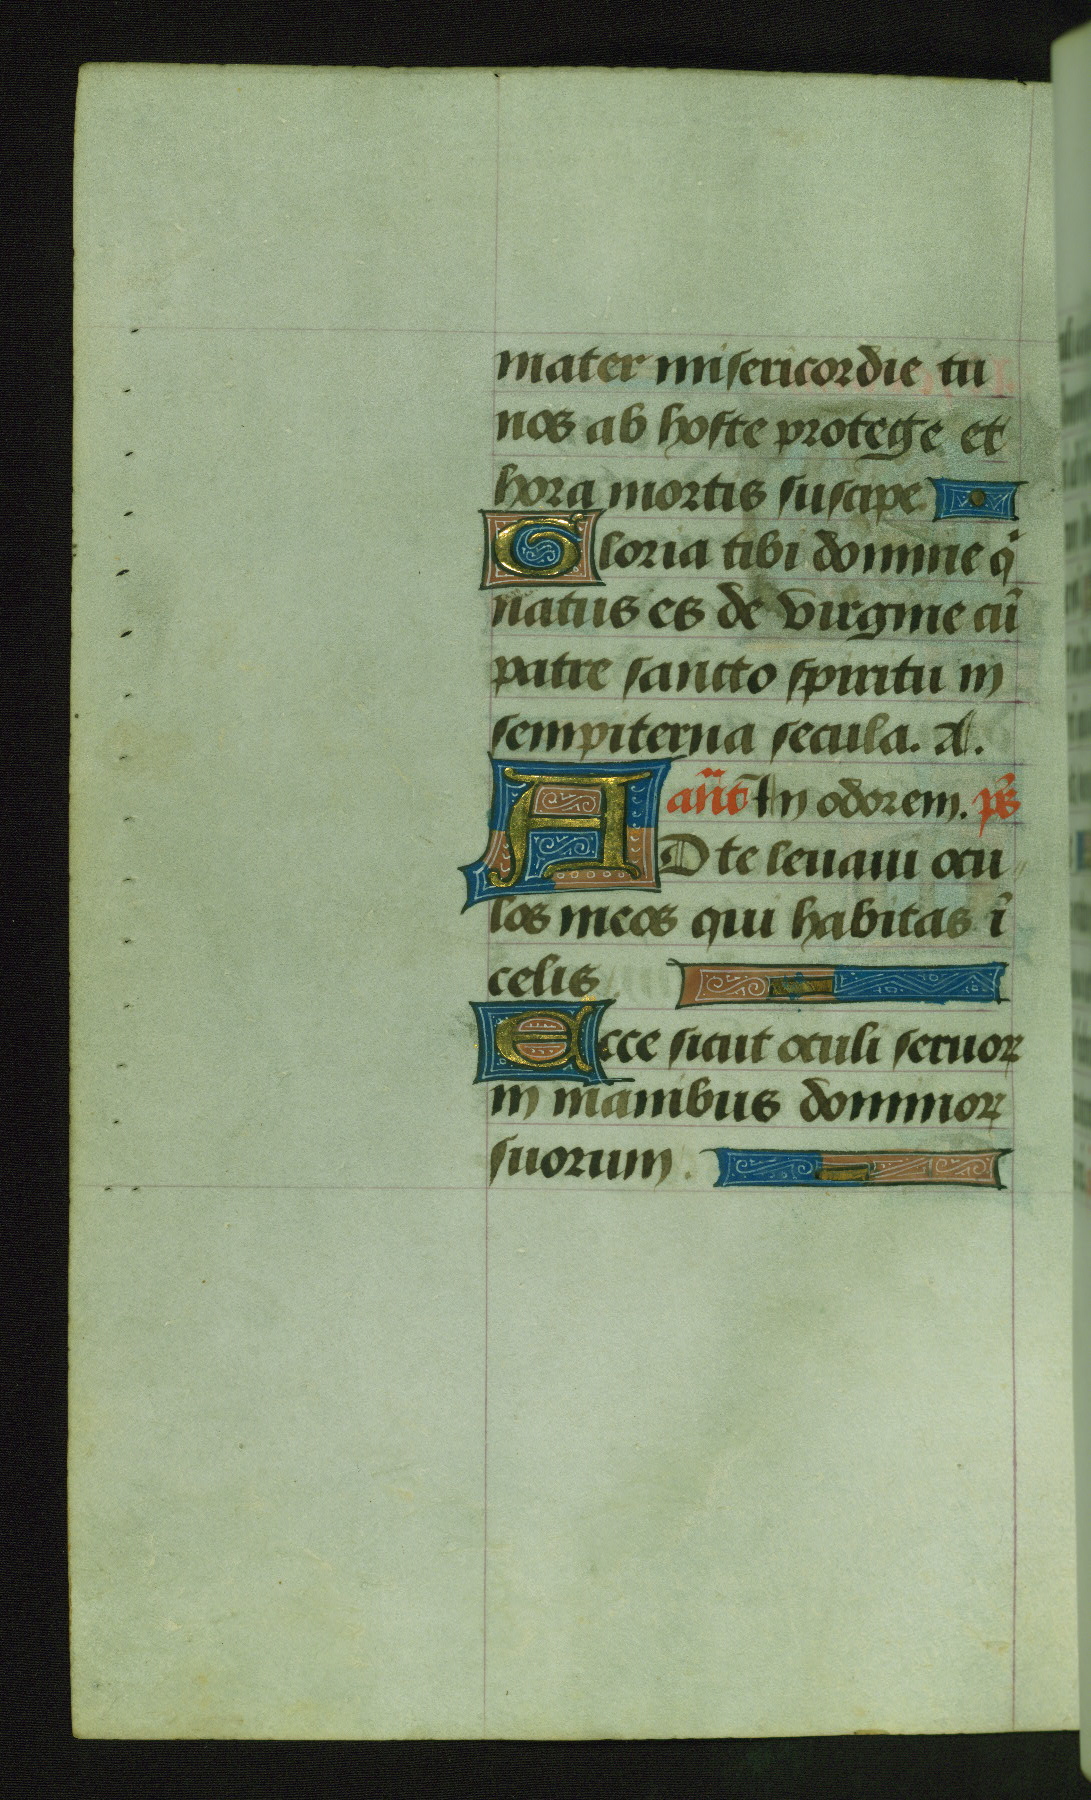 mater misericordie tu
nos ab hoste protege et
hora mortis suscipe.
Gloria tibi domine q̄
natus es de virgine cū
patre sancto spiritu in
sempiterna secula. A.
an̄t In odorem. ps̄
AD te leuaui ocu
los meos qui habitas ī
celis
Ecce sicut oculi seruoꝝ
in manibus dominoꝝ
suorum.